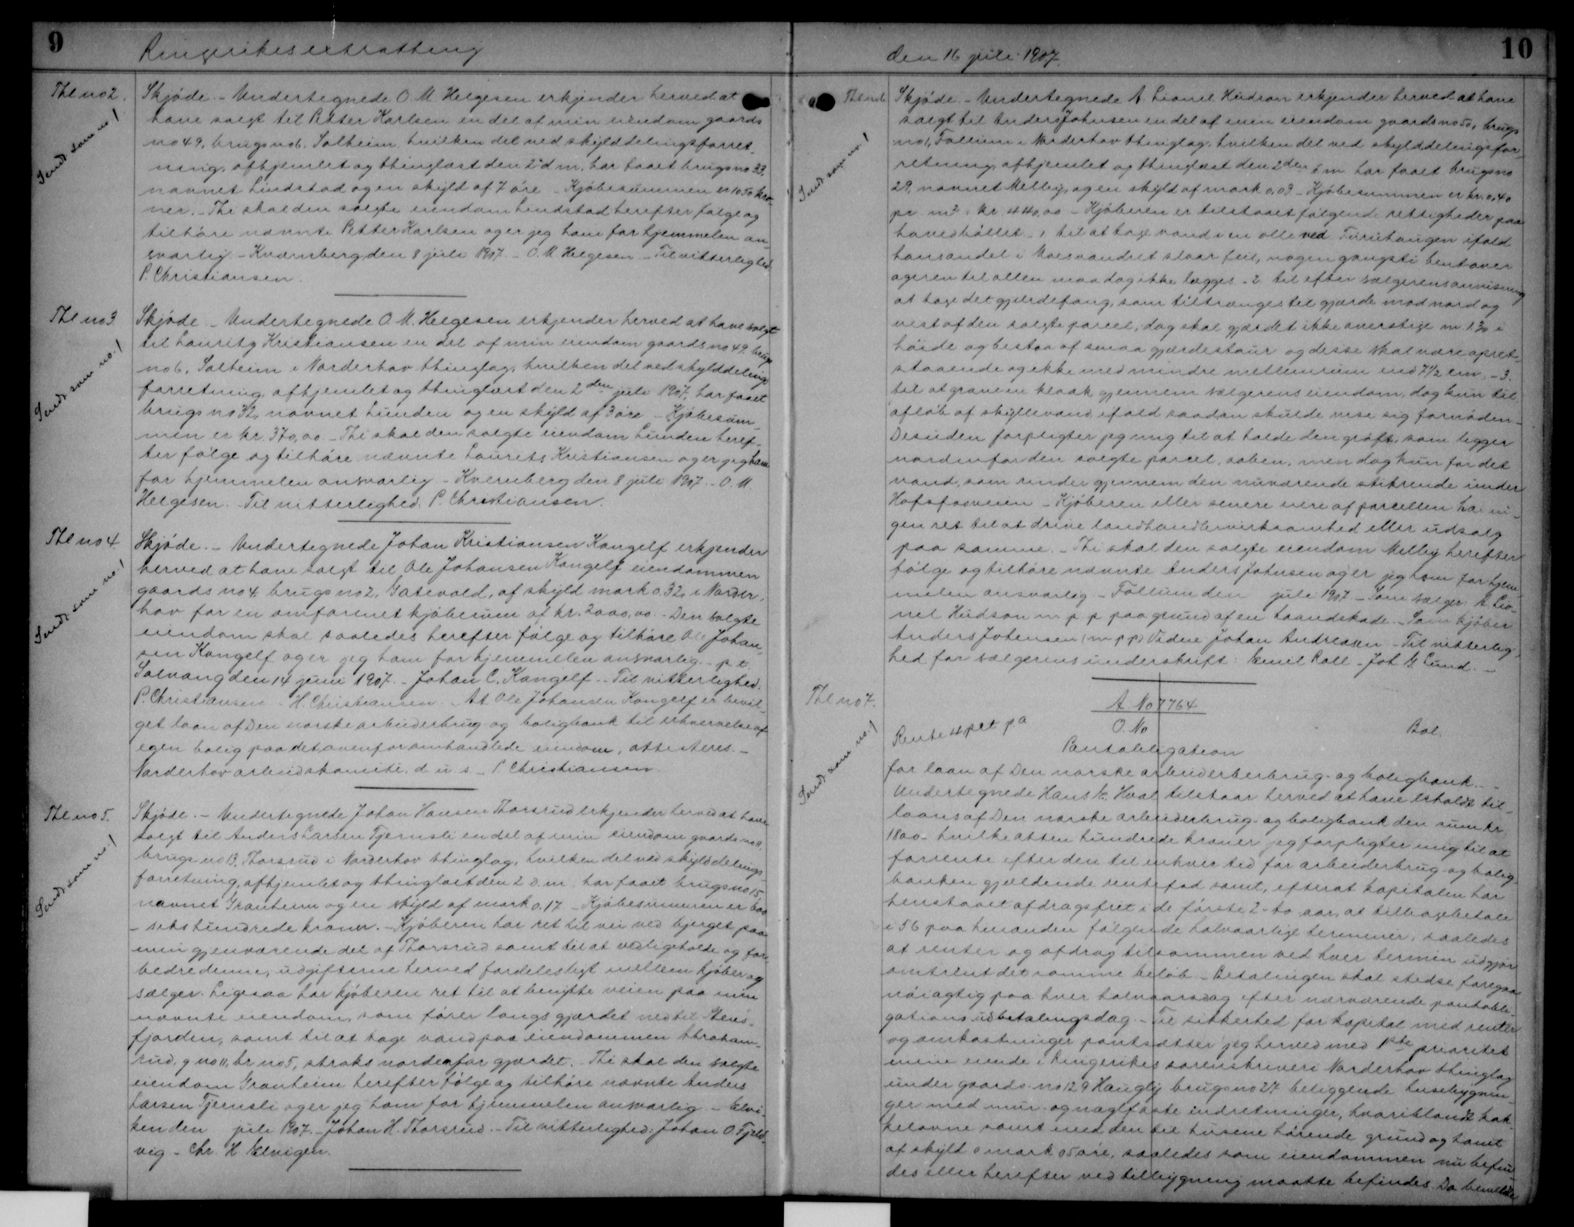 9
Ringerikes extratthing
Thl no 2.
Send som no. 1
Skjøde. – Undertegnede O. M. Helgesen erkjender herved at
have solgt til Petter Karlsen en del af min eiendom gaards
no 49, brugs no 6. Solheim hvilken del ved skylddelingsforret-
ning, afhjemlet og thinglæst den 2 d. m. har faaet brugs no 33,
navnet Lindstad og en skyld af 7 øre – Kjøbesummen er 1050 kro-
ner. – Thi skal den solgte eiendom Lindstad herefter følge og
tilhøre nævnte Petter Karlsen og er jeg ham for hjemmelen an-
svarlig – Kværnberg den 8 juli 1907. – O. M. Helgesen – Til vitterlighed
P. Christiansen.
Thl no 3
Send som no. 1
Skjøde – Undertegnede O. M. Helgesen erkjender herved at have solgt
til Lauritz Kristiansen en del af min eiendom gaards no 49, brugs
no 6, Solheim i Norderhov thinglag, hvilken del ved skylddeling
forretning afhjemlet og thinglæst den 2den juli 1907, har faaet
brugs no 32, navnet Lunden og en skyld af 3 øre – Kjøbesum-
men er kr. 370,00. – Thi skal den solgte eiendom Lunden heref-
ter følge og tilhøre nævnte Laurits Kristiansen og er jeg ham
for hjemmelen ansvarlig – Kvernberg den 8 juli 1907 – O. M.
Helgesen. – Til vitterlighed. P. Christiansen.
Thl no 4
Send som no. 1
Skjøde. – Undertegnede Johan Kristiansen Kongelf erkjender
herved at have solgt til Ole Johansen Kongelf eiendommen
gaards no 4 brugs no 2, Gatevold, af skyld mark 0,32, i Norder-
hov for en omforenet kjøbesum af kr. 2000,00. – Den solgte
eiendom skal saaledes herefter følge og tilhøre Ole Johan-
sen Kongelf og er jeg ham for hjemmelen ansvarlig – p. t.
Solvang den 14 juni 1907. – Johan C. Kongelf. – Til vitterlighed.
P. Christiansen – H. Christiansen – At Ole Johansen Kongelf er bevil-
get laan af Den norske arbeiderbrug og boligbank til erhvervelse af
egen bolig paa det ovenfor omhandlede eiendom, attesteres. –
Norderhov arbeidskomite, d. u. s. – P. Christiansen.
Thl no 5.
Send som no. 1
Skjøde. – Undertegnede Johan Hansen Thorsrud erkjender herved at have
solgt til Anders Larsen Tjernsli en del af min eiendom gaards no 11
brugs no 13, Thorsrud i Norderhov thinglag, hvilken del ved skylddelings-
forretning, afhjemlet og thinglæst den 2 d. m. har faaet brugs no 15,
navnet Granheim og en skyld af mark 0,17 – Kjøbesummen er 600
– seks hundrede kroner. – Kjøberen har ret til vei ved bjerget paa
min gjenværende del af Thorsrud samt til at vedligeholde og for-
bedre denne, udgifterne herved fordeles ligt mellem kjøber og
sælger. Ligesaa har kjøberen ret til at benytte veien paa min
nævnte eiendom, som fører langs gjærdet ned til Stens-
fjorden, samt til at tage vand paa eiendommen Abraham-
rud, g. no 11, br. no 5, straks nordenfor gjærdet. Thi skal den solgte
eiendom Granheim herefter følge og tilhøre nævnte Anders
Larsen Tjernsli og er jeg ham for hjemmelen ansvarlig – Elvi-
ken den juli 1907. – Johan H. Thorsrud. – Til vitterlighed: Johan O. Fjeld-
vig – Chr. H. Elvigen.
den 16 juli 1907.
10
Thl no 6
Send som no. 1
Skjøde. – Undertegnede A. Lionel Hudson erkjender herved at have
solgt til Anders Johnsen en del af min eiendom gaards no 50, brugs
no 1, Follum i Norderhov thinglag, hvilken del ved skylddelingsfor-
retning, afhjemlet og thinglæst den 2den d. m. har faaet brugs no
29, navnet Melby, og en skyld af mark 0,03 – Kjøbesummen er kr. 0,40
pr. m² : kr. 440,00 – Kjøberen er tilstaaet følgende rettigheder paa
hovedbøllet – 1 til at tage vand i en olle ved Furuhaugen ifald
hans andel i Moesvandet slaar feil, nogen gangsti bent over
ageren til ollen maa dog ikke lægges – 2 til efter sælgerens anvisning
at tage det gjerdefang, som tiltrænges til gjærde mod nord og
vest af den solgte parcel, dog skal gjærdet ikke overstige m. 1,20 i
høide og bestaa af smaa gjærdestaur og disse skal være opret-
staaende og ikke med mindre mellemrum end 7½ cm. – 3.
til at grave en kloak gjennem sælgerens eiendom, dog kun til
afløb af skyllevand ifald saadan skulde vise sig fornøden –
Desuden forpligter jeg mig til at holde den grøft, som ligger
nordenfor den solgte parcel, aaben, men dog kun for det
vand, som rinder gjennem den nuværende stikrende under
Hofsfosveien – Kjøberen eller senere eiere af parcellen har in-
gen ret til at drive landhandlervirksomhed eller udsalg
paa samme. – Thi skal den solgte eiendom Melby herefter
følge og tilhøre nævnte Anders Johnsen og er jeg ham for hjem-
melen ansvarlig – Follum den juli 1907 – Som sælger A. Lio-
nel Hudson m. p. p. paa grund af en haandskade – Som kjøber
Anders Johnsen (m. p. p.) Vidne Johan Andreasen – Til vitterlig-
hed for sælgerens underskrift: Emil Roll – Joh. G. Lund. –
Thl no 7.
Send som no. 1
A No 7764
Rente 4 pct. pa
O. No
Bol.
Pantobligation
for laan af Den norske arbeiderbrug- og boligbank. –
Undertegnede Hans K. Hval tilstaar herved at have erholdt til-
laans af Den norske arbeiderbrug- og boligbank den sum kr.
1800 – hvilke atten hundrede kroner jeg forpligter mig til at
forrente efter den til enhver tid for arbeiderbrug og bolig-
banken gjældende rentefod samt, efterat kapitalen har
henstaaet afdragsfret i de første 2 – to aar, at tilbagebetale
i 56 paa hinanden følgende halvaarlige terminer, saaledes
at renter og afdrag tilsammen ved hver termin udgjør
omtrent det samme beløb – Betalingen skal stedse foregaa
nøiagtig paa hver halvaarsdag efter nærværende pantobli-
gations udbetalingsdag – Til sikkerhed for kapital med renter
og omkostninger pantsætter jeg herved med 1ste prioritet
mine eiende i Ringerikes sorenskriveri Norderhov thinglag
under gaards-no 129 Haugly brugs no 27 beliggende husebygnin-
ger med mur- og naglfaste indretninger, hvoriblandt kak-
kelovne samt med den til husene hørende grund og tomt
af skyld 0 mark 05 øre, saaledes som eiendommen nu befin-
des eller herefter ved tilbygning maatte befindes. Da bemeldte